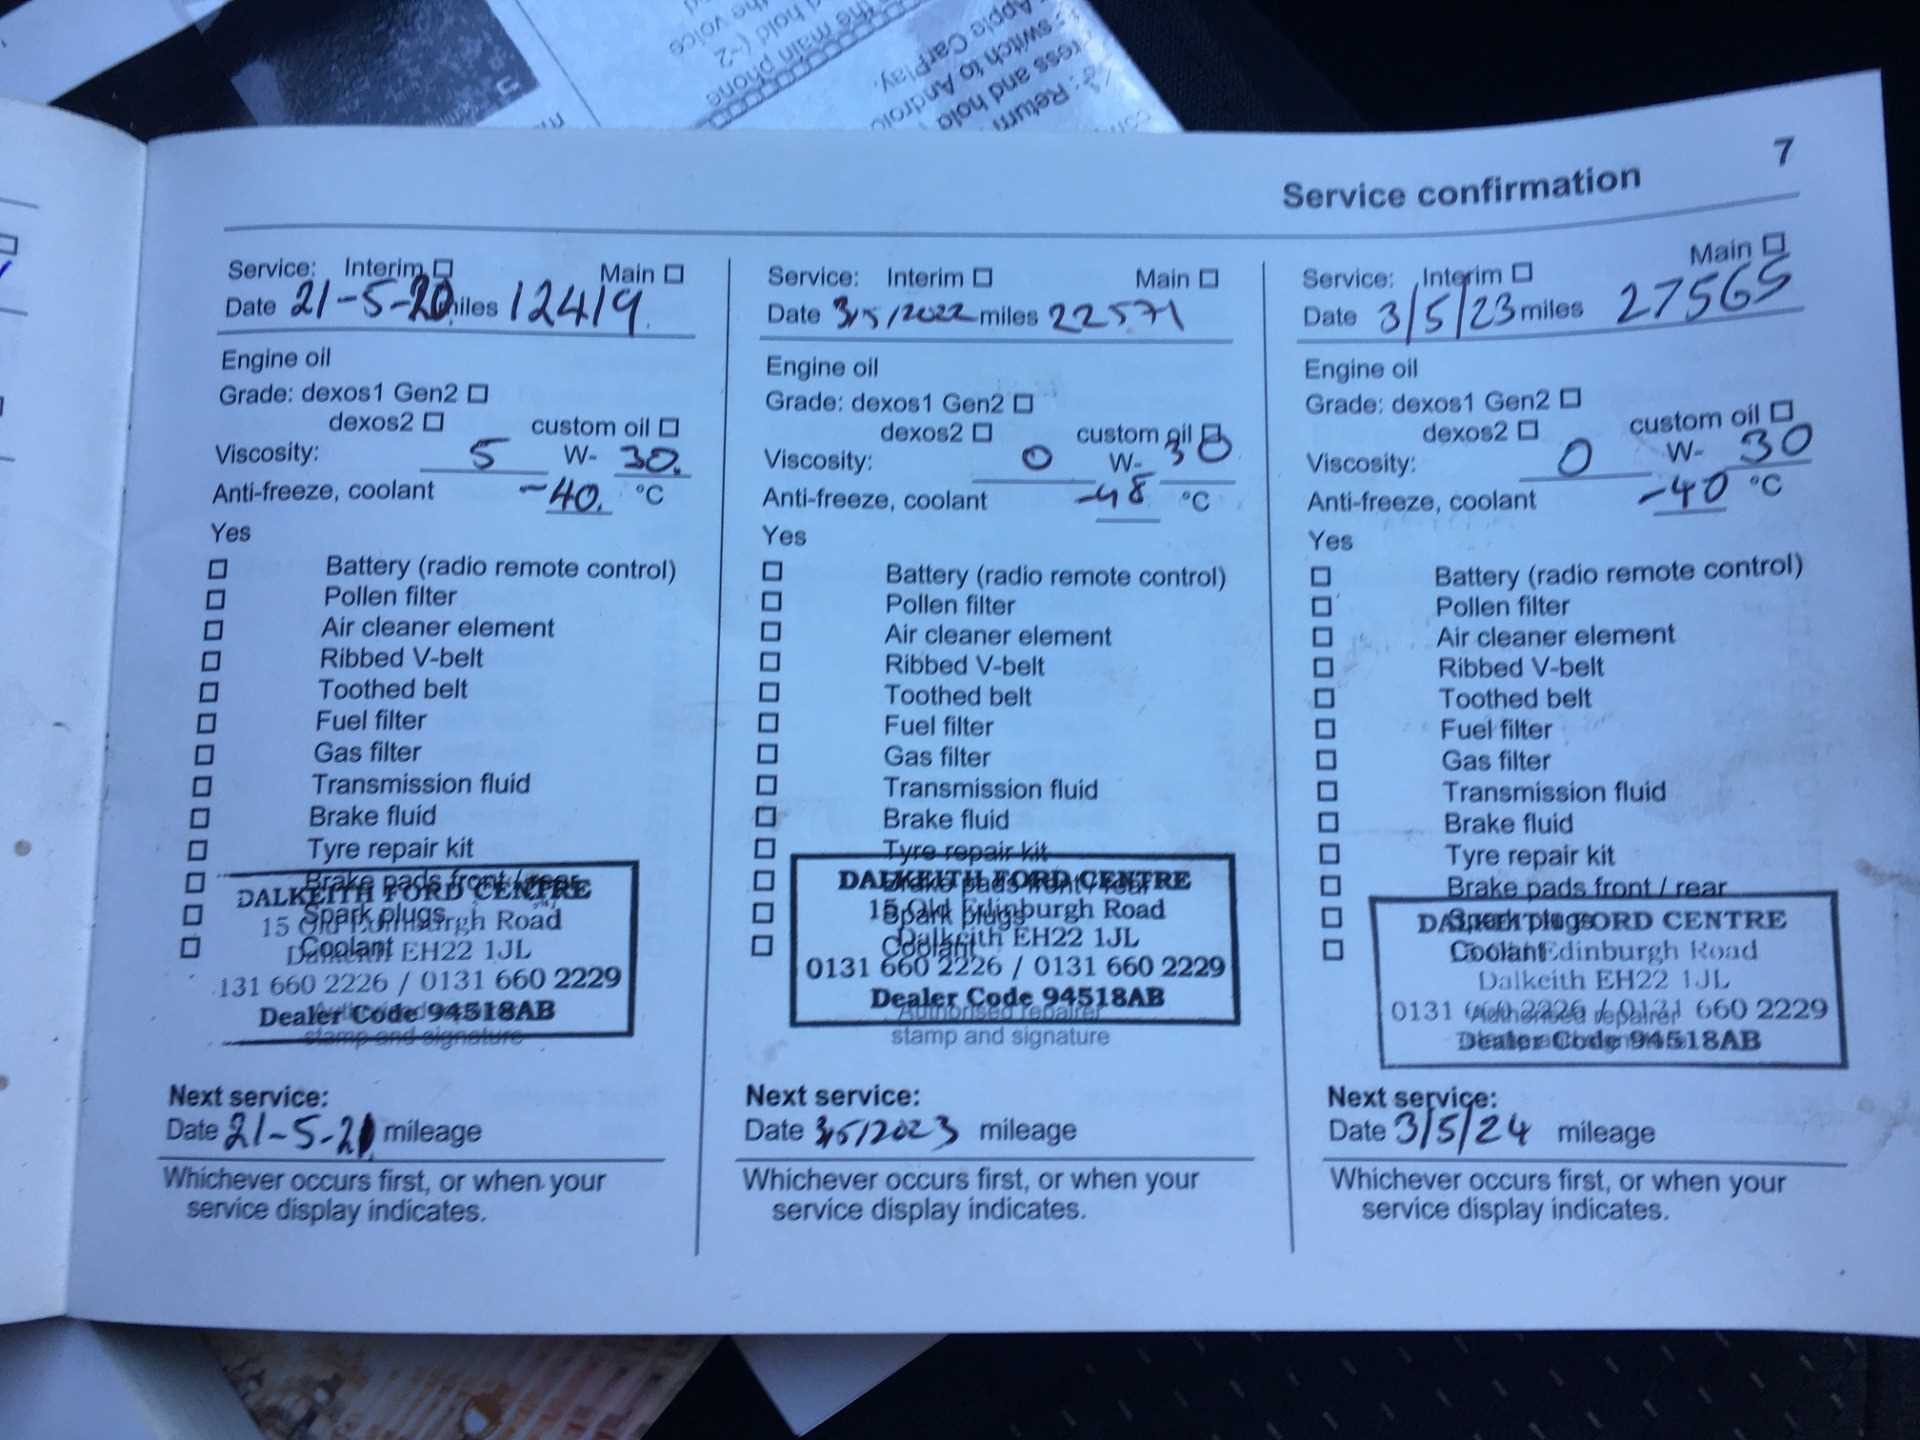 the voice
d hold (~2
the main phone
Apple CarPlay.
switch to Androi
ress and hold
: Return
7
Service confirmation
Service: Interim ☐ Main ☐
Date 21-5-20 miles 12419.
Engine oil
Grade: dexos1 Gen2 ☐
dexos2 ☐ custom oil ☐
Viscosity: 5 W- 30.
Anti-freeze, coolant -40. °C
Yes
☐ Battery (radio remote control)
☐ Pollen filter
☐ Air cleaner element
☐ Ribbed V-belt
☐ Toothed belt
☐ Fuel filter
☐ Gas filter
☐ Transmission fluid
☐ Brake fluid
☐ Tyre repair kit
☐ Brake pads front / rear
☐ Spark plugs
☐ Coolant
DALKEITH FORD CENTRE
15 Old Edinburgh Road
Dalkeith EH22 1JL
131 660 2226 / 0131 660 2229
Dealer Code 94518AB
Authorised repairer
stamp and signature
Next service:
Date 21-5-21 mileage
Whichever occurs first, or when your
service display indicates.
Service: Interim ☐ Main ☐
Date 3/5/2022 miles 22571
Engine oil
Grade: dexos1 Gen2 ☐
dexos2 ☐ custom oil ☐
Viscosity: 0 W- 30
Anti-freeze, coolant -48 °C
Yes
☐ Battery (radio remote control)
☐ Pollen filter
☐ Air cleaner element
☐ Ribbed V-belt
☐ Toothed belt
☐ Fuel filter
☐ Gas filter
☐ Transmission fluid
☐ Brake fluid
☐ Tyre repair kit
☐ Brake pads front / rear
☐ Spark plugs
☐ Coolant
DALKEITH FORD CENTRE
15 Old Edinburgh Road
Dalkeith EH22 1JL
0131 660 2226 / 0131 660 2229
Dealer Code 94518AB
Authorised repairer
stamp and signature
Next service:
Date 3/5/2023 mileage
Whichever occurs first, or when your
service display indicates.
Service: Interim ☐ Main ☐
Date 3/5/23 miles 27565
Engine oil
Grade: dexos1 Gen2 ☐
dexos2 ☐ custom oil ☐
Viscosity: 0 W- 30
Anti-freeze, coolant -40 °C
Yes
☐ Battery (radio remote control)
☐ Pollen filter
☐ Air cleaner element
☐ Ribbed V-belt
☐ Toothed belt
☐ Fuel filter
☐ Gas filter
☐ Transmission fluid
☐ Brake fluid
☐ Tyre repair kit
☐ Brake pads front / rear
☐ Spark plugs
☐ Coolant
DALKEITH FORD CENTRE
Edinburgh Road
Dalkeith EH22 1JL
0131 660 2226 / 0131 660 2229
Dealer Code 94518AB
Authorised repairer
stamp and signature
Next service:
Date 3/5/24 mileage
Whichever occurs first, or when your
service display indicates.